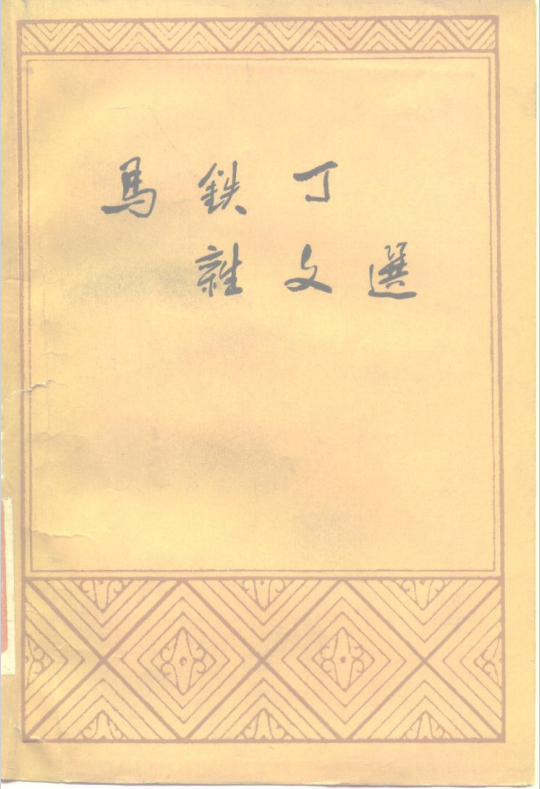 馬鉄丁
雜文選